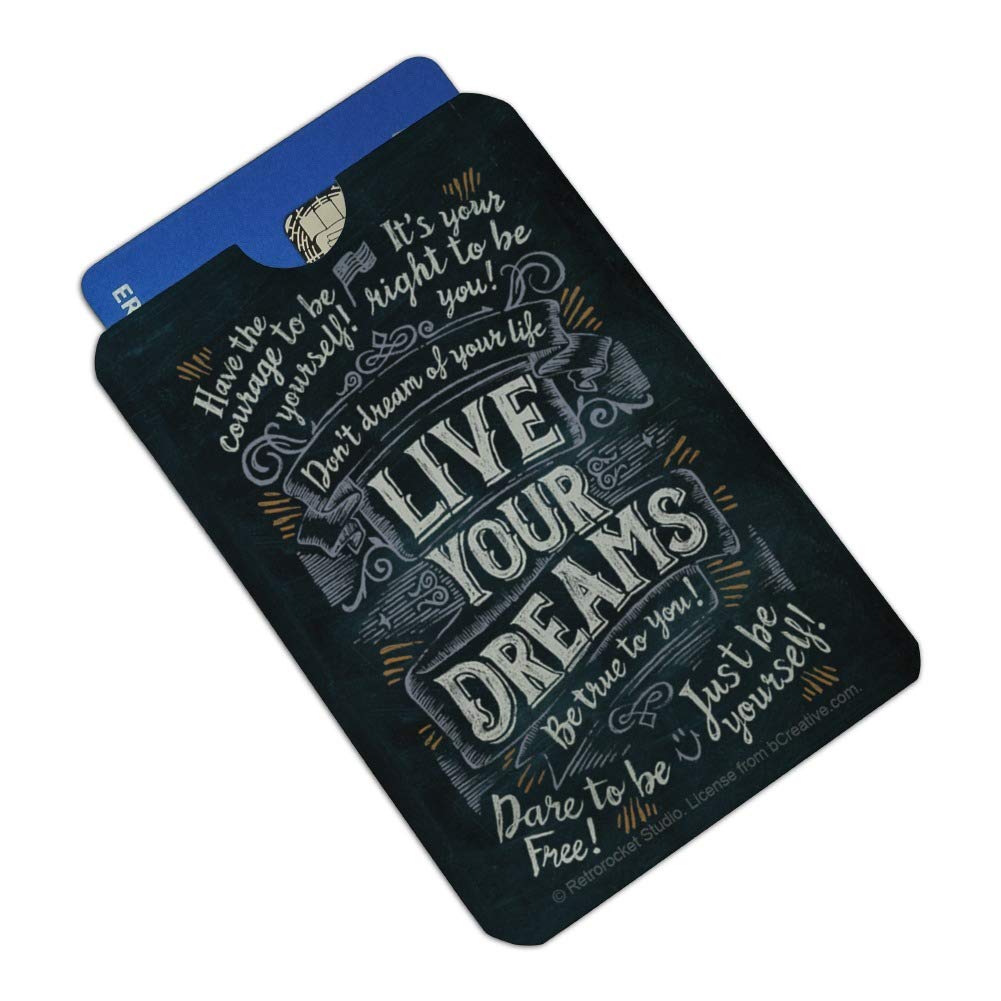 ER
Have the
courage to be
yourself!
It's your
right to be
you!
Don't dream of your life
LIVE
YOUR
DREAMS
Be true to you!
Just be
yourself!
Dare to be
Free!
© Retrorocket Studio. License from bCreative.com.